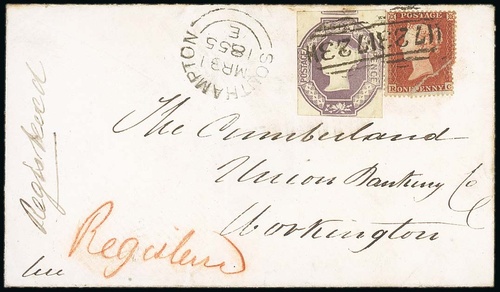 SOUTHAMPTON
MR 31
1855
E
POSTAGE
723
POSTAGE
ONE PENNY
Registered
The Cumberland
Union Banking Co
Workington
Registered